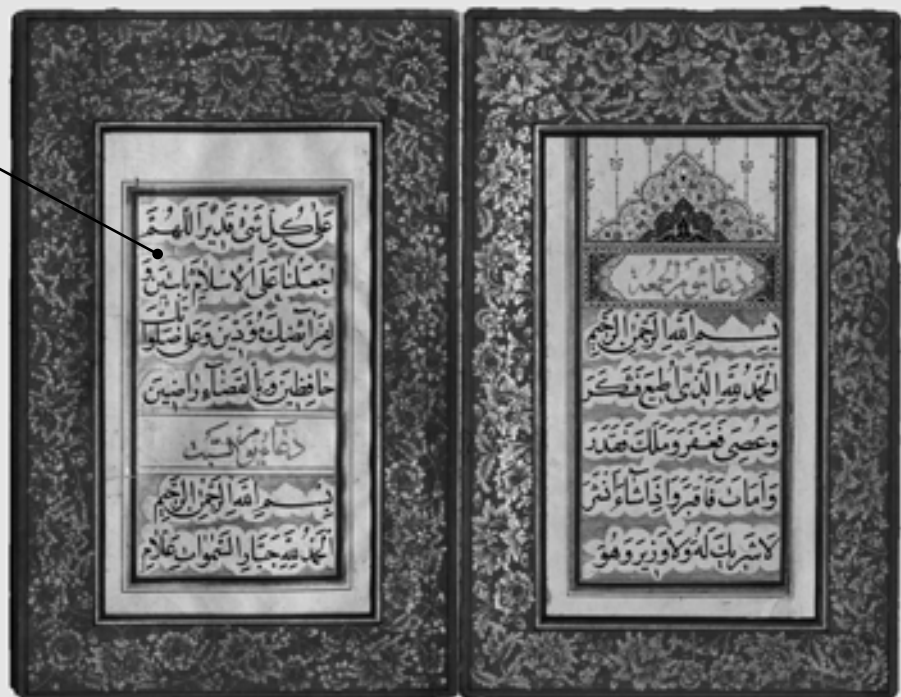 دعاء يوم الجمعة
بسم الله الرحمن الرحيم
الحمد لله الذي اطيع فشكر
وعصى فغفر وملك فقدر
وامات فاقبر واذا شاء انشر
لا شريك له ولا وزير وهو
على كل شئ قدير اللهم
اجعلنا على الاسلام ثابتين و
لفرائضك مؤدين وعلى صلواتك
حافظين وبالقضاء راضين
دعاء يوم
بسم الله الرحمن الرحيم
الحمد لله جبار السموات علام